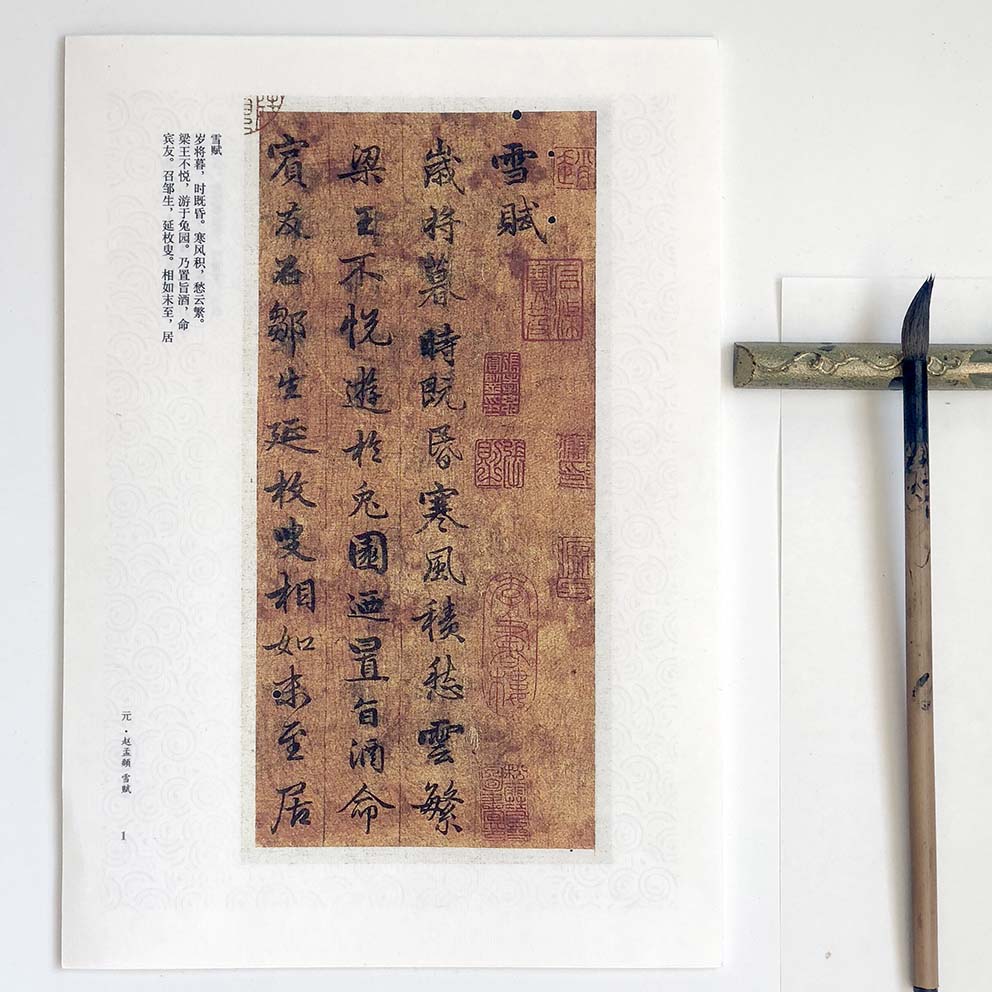 雪賦
歲將暮時既昏寒風積愁雲繁
梁王不悅遊於兔園迺置旨酒命
賓友召鄒生延枚叟相如末至居
雪赋
岁将暮，时既昏。寒风积，愁云繁。
梁王不悦，游于兔园。乃置旨酒，命
宾友。召邹生，延枚叟。相如末至，居
元·赵孟頫 雪赋
1